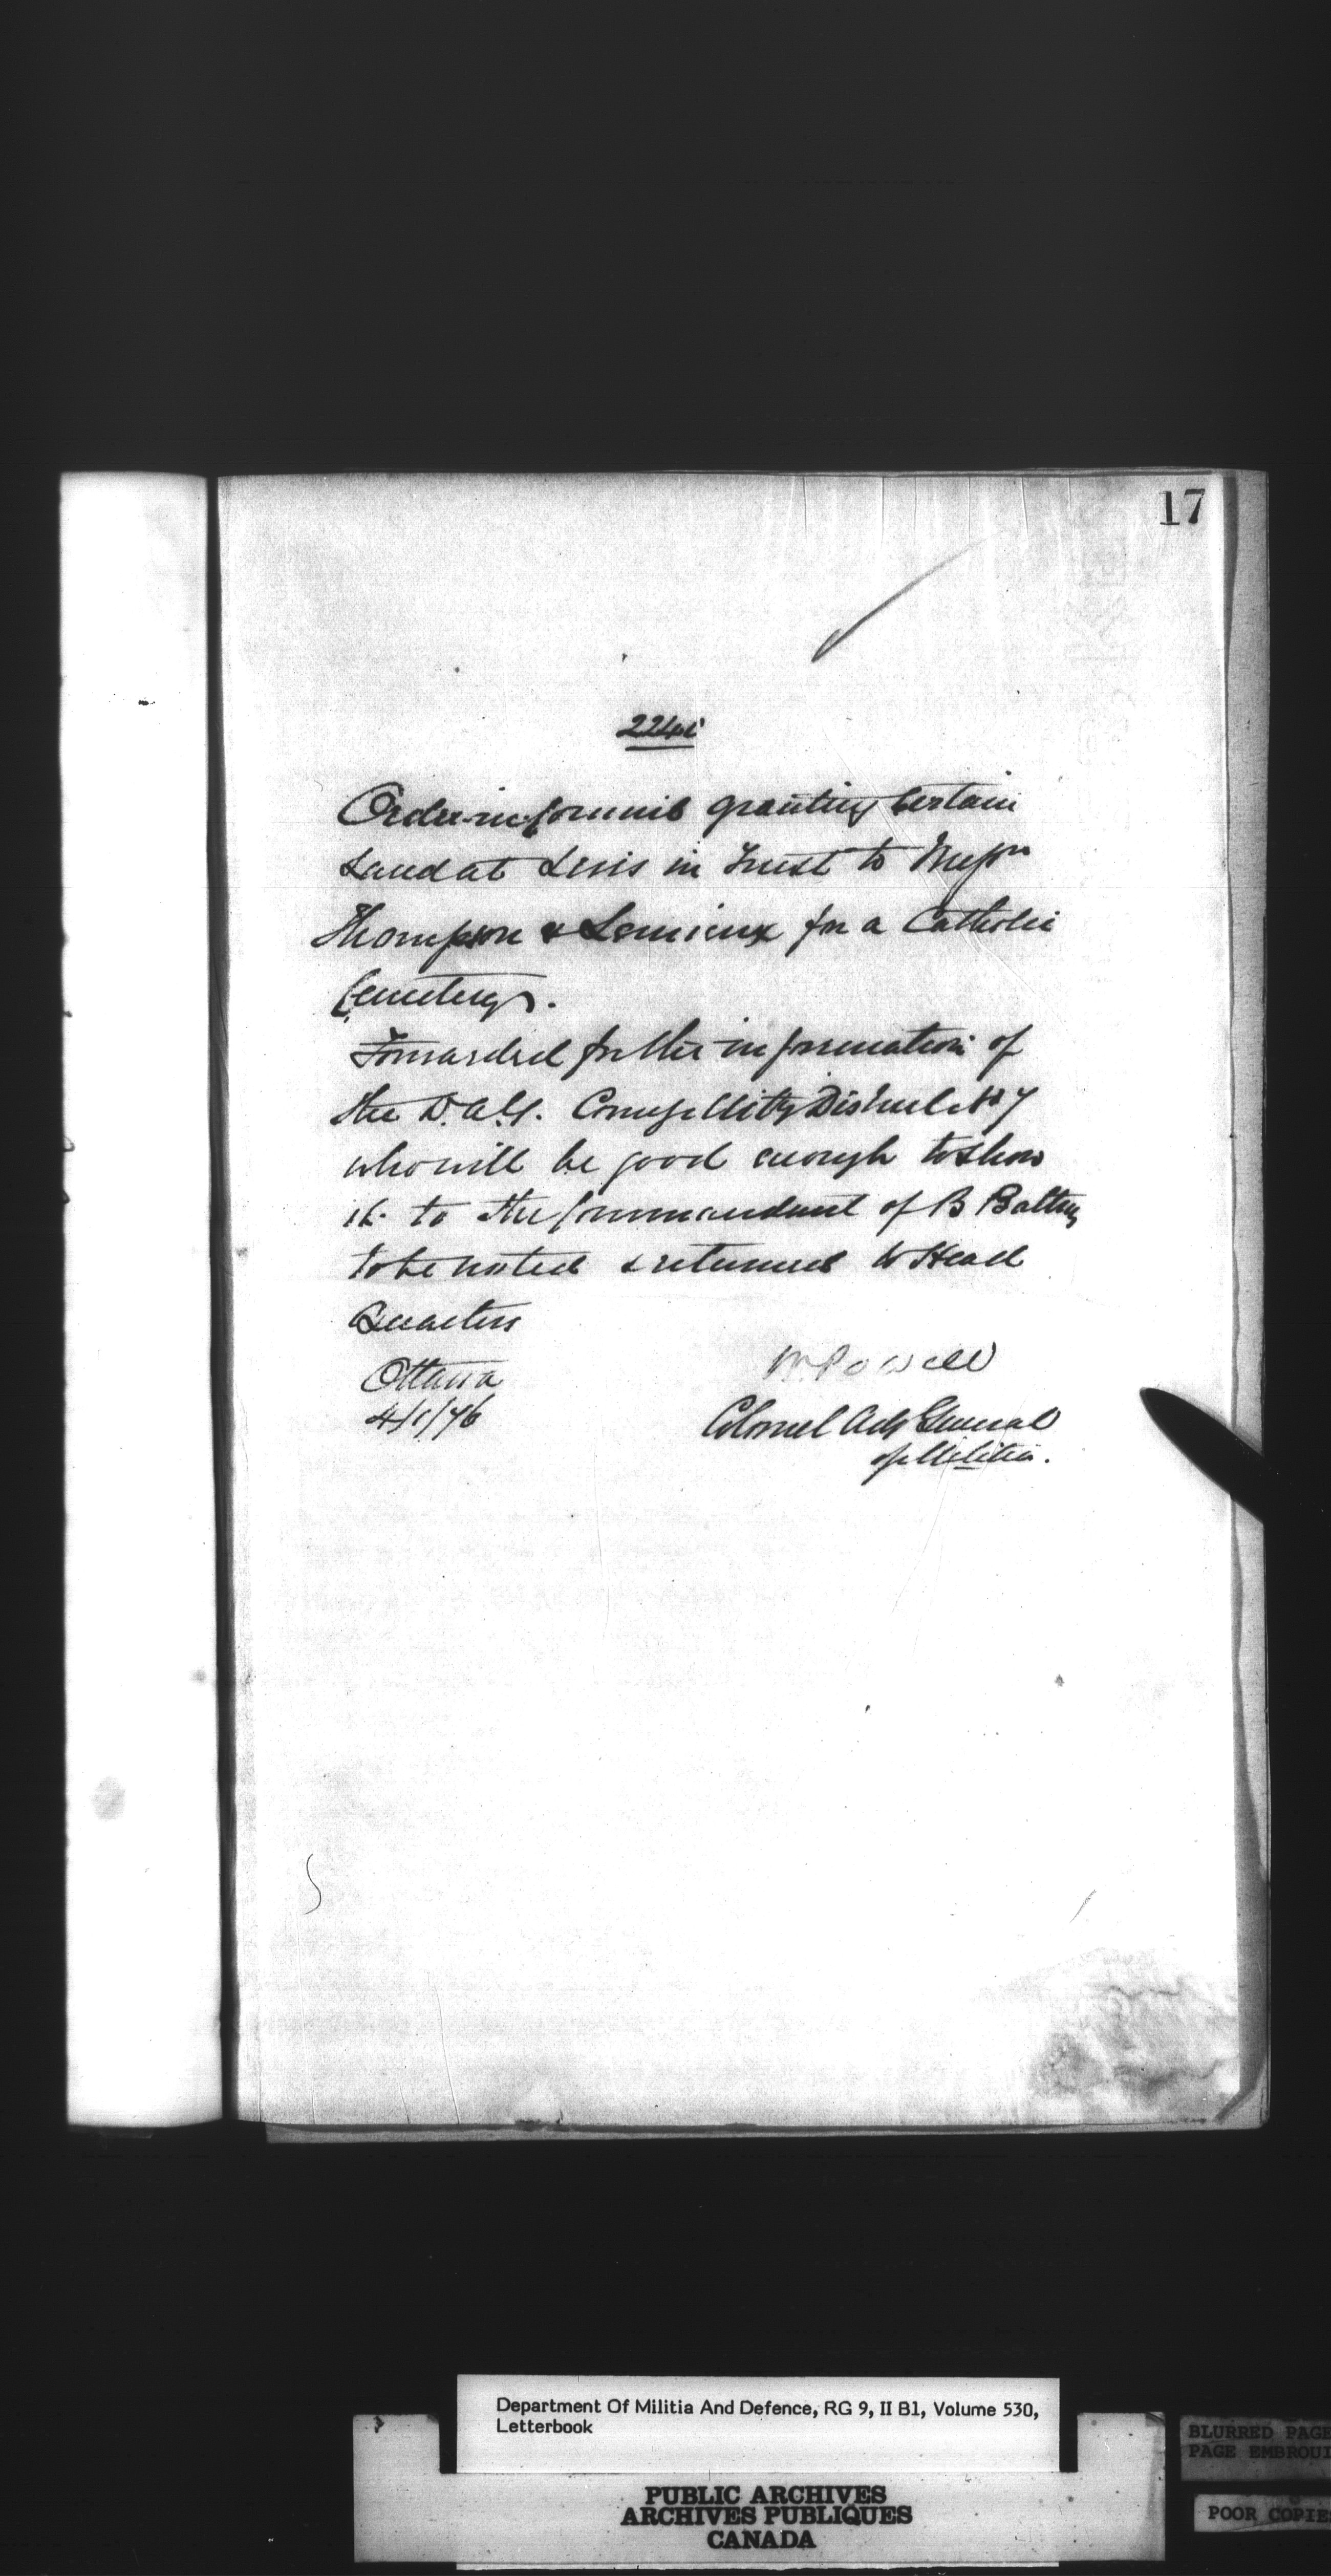 17
2240
Order-in-Council granting certain
Land at Levis in trust to Messrs
Thompson & Lemieux for a Catholic
Cemetery.
Forwarded for the information of
the D.A.G. Comg Military District No 7
who will be good enough to show
it to the Commandant of B Battery
to be noted & returned to Head
Quarters
Ottawa
4/1/76
W Powell
Colonel Adjt General
of Militia.
Department Of Militia And Defence, RG 9, II B1, Volume 530,
Letterbook
PUBLIC ARCHIVES
ARCHIVES PUBLIQUES
CANADA
BLURRED PAGE
PAGE EMBROUI
POOR COPIE